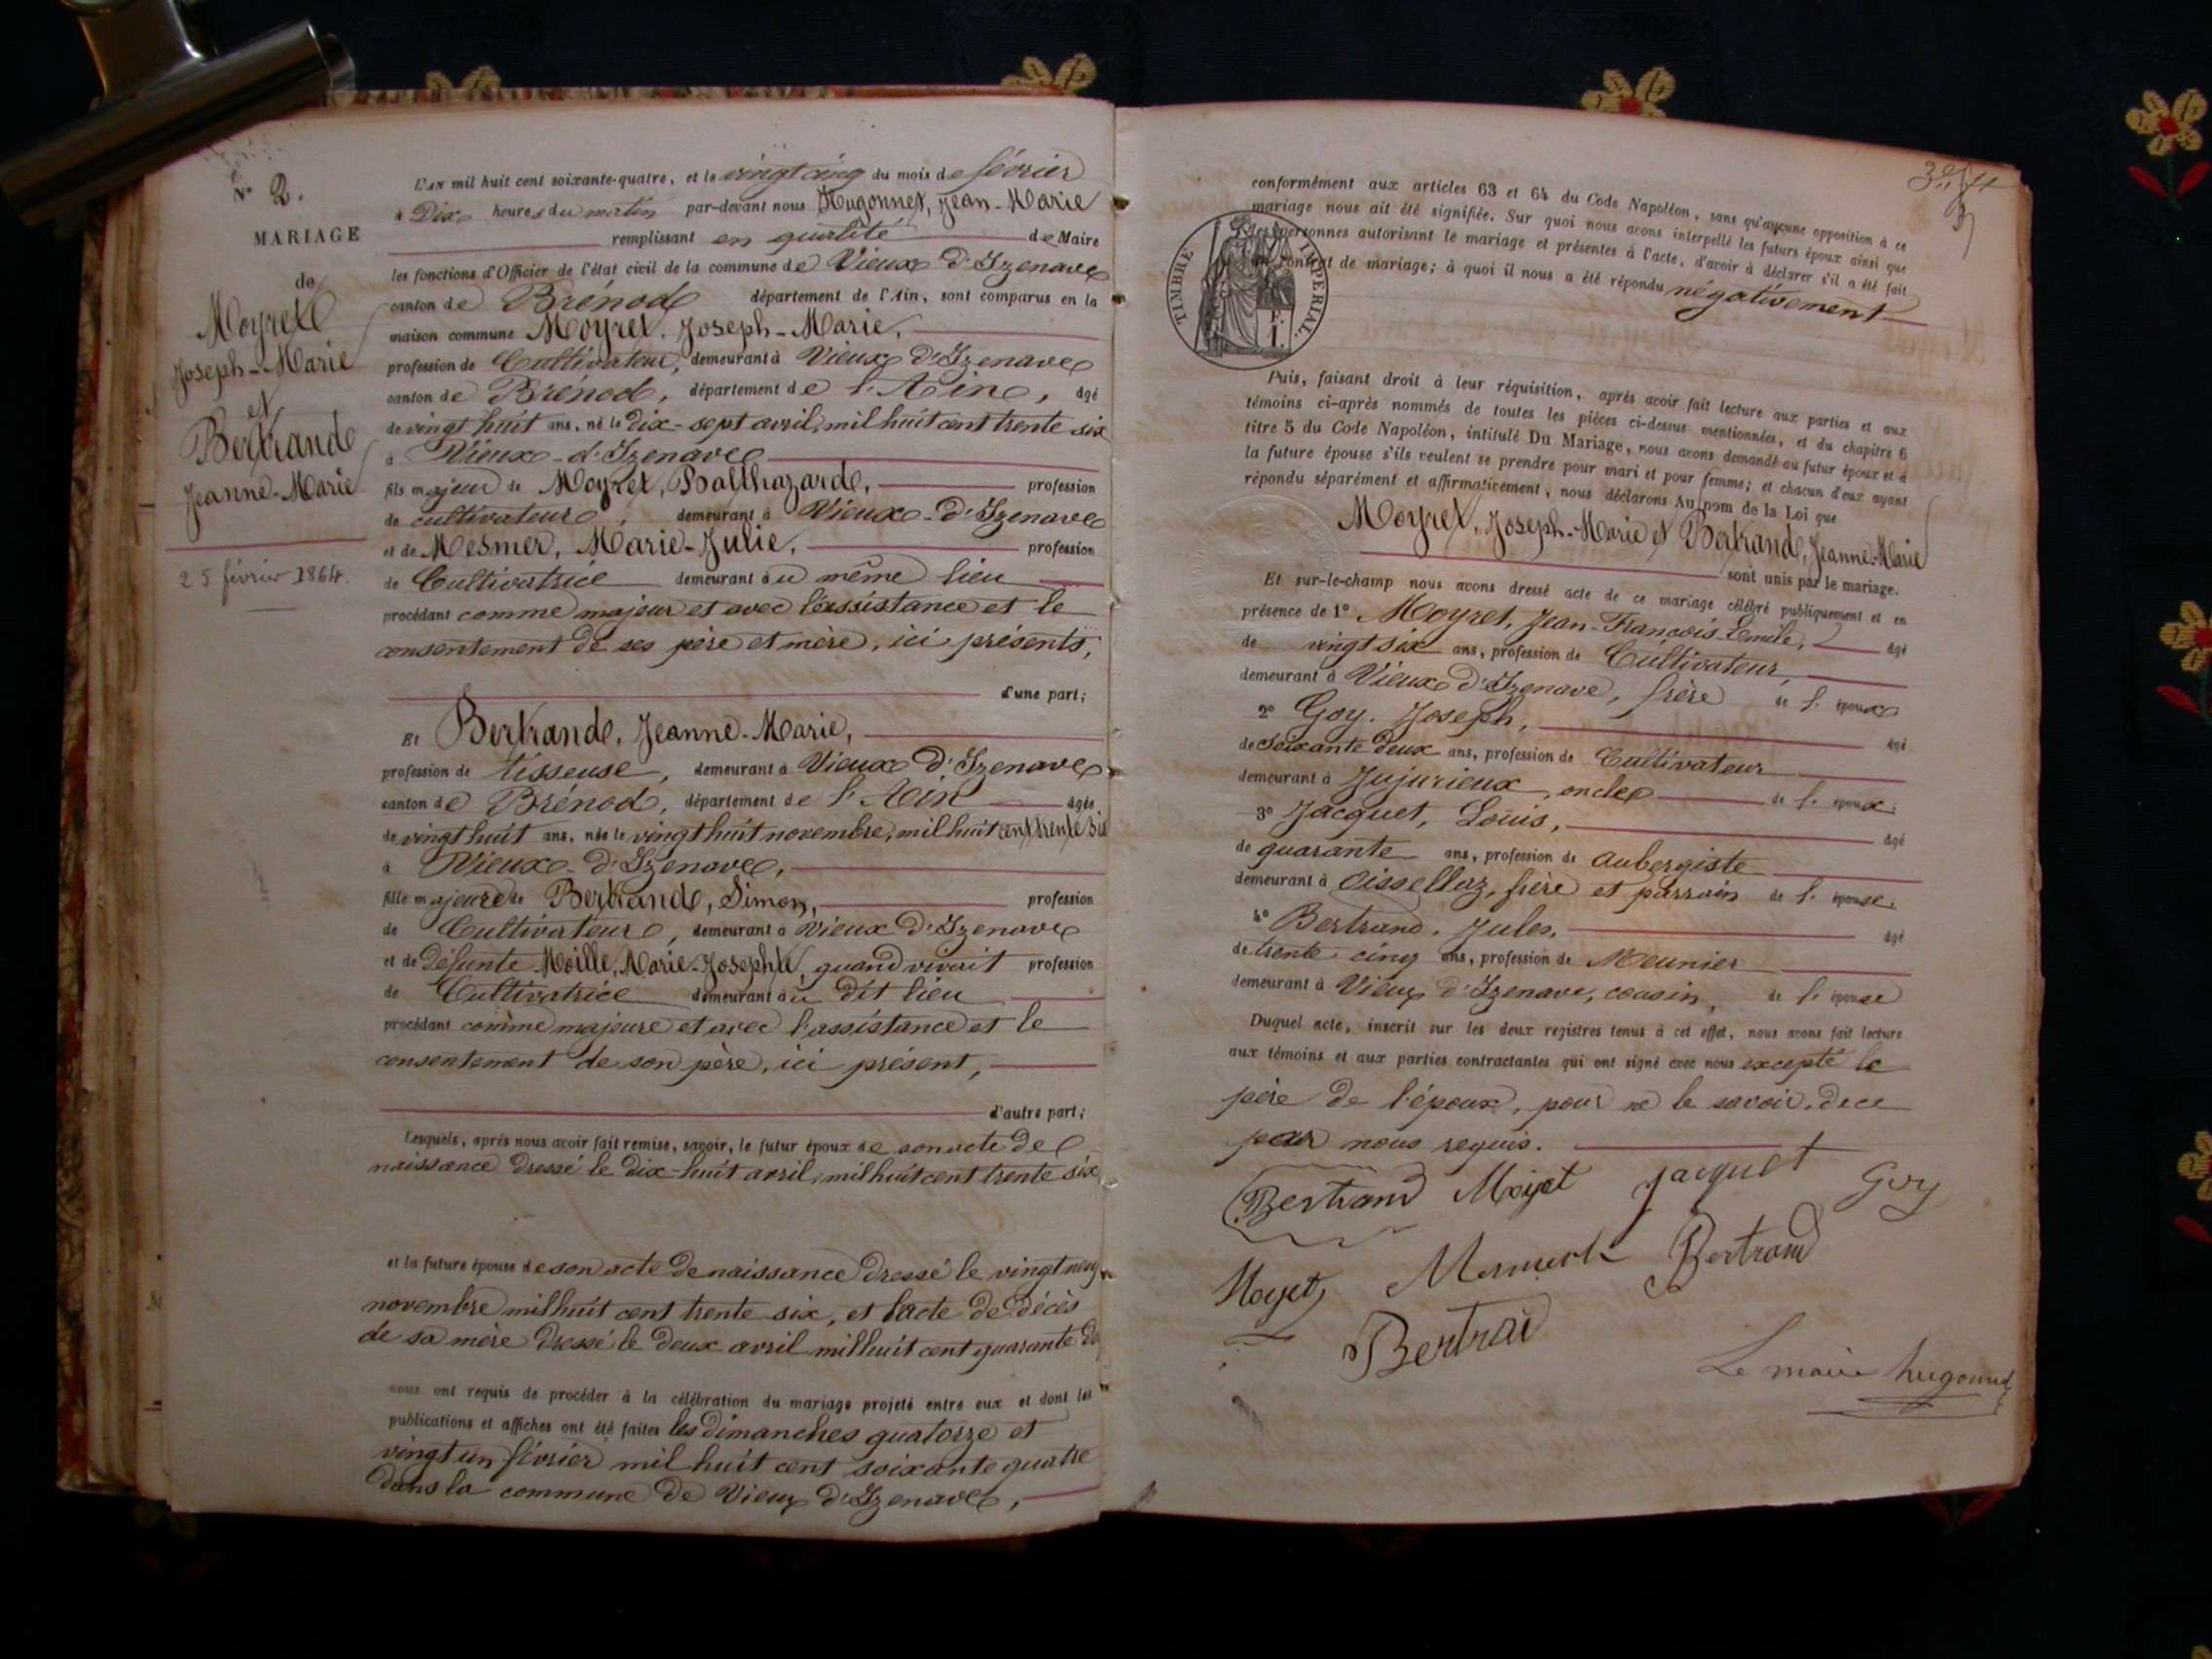 N° 2.
MARIAGE
de
Moyret
Joseph-Marie
et
Bertrand
Jeanne-Marie
25 février 1864.
L'AN mil huit cent soixante-quatre, et le vingt cinq du mois de février
à Dix heures du matin par-devant nous Hugonnet, Jean-Marie
remplissant en qualité de Maire
les fonctions d'Officier de l'état civil de la commune de Vieux d'Izenave
canton de Brénod département de l'Ain, sont comparus en la
maison commune Moyret, Joseph-Marie,
profession de Cultivateur, demeurant à Vieux d'Izenave
canton de Brénod, département de l'Ain, âgé
de vingt huit ans, né le dix-sept avril, mil huit cent trente six
à Vieux-d'Izenave
fils majeur de Moyret, Balthazard, profession
de cultivateur, demeurant à Vieux-d'Izenave
et de Mesmer, Marie-Julie, profession
de Cultivatrice demeurant au même lieu
procédant comme majeur et avec l'assistance et le
consentement de ses père et mère, ici présents,
d'une part;
Et Bertrand, Jeanne-Marie,
profession de tisseuse, demeurant à Vieux d'Izenave
canton de Brénod, département de l'Ain âgée
de vingt huit ans, née le vingt huit novembre, mil huit cent trente six
à Vieux-d'Izenave,
fille majeure de Bertrand, Simon, profession
de Cultivateur, demeurant à Vieux d'Izenave
et de défunte Moille, Marie-Josephte, quand vivait profession
de Cultivatrice demeurant au dit lieu
procédant comme majeure et avec l'assistance et le
consentement de son père, ici présent,
d'autre part;
Lesquels, après nous avoir fait remise, savoir, le futur époux de son acte de
naissance dressé le dix-huit avril, mil huit cent trente six
et la future épouse de son acte de naissance dressé le vingt neuf
novembre mil huit cent trente six, et l'acte de décès
de sa mère dressé le deux avril mil huit cent quarante
nous ont requis de procéder à la célébration du mariage projeté entre eux et dont les
publications et affiches ont été faites les dimanches quatorze et
vingt un février mil huit cent soixante quatre
dans la commune de Vieux d'Izenave,
conformément aux articles 63 et 64 du Code Napoléon, sans qu'aucune opposition à ce
mariage nous ait été signifiée. Sur quoi nous avons interpellé les futurs époux ainsi que
les personnes autorisant le mariage et présentes à l'acte, d'avoir à déclarer s'il a été fait
un contrat de mariage; à quoi il nous a été répondu négativement
TIMBRE IMPÉRIAL.
Puis, faisant droit à leur réquisition, après avoir fait lecture aux parties et aux
témoins ci-après nommés de toutes les pièces ci-dessus mentionnées, et du chapitre 6
titre 5 du Code Napoléon, intitulé Du Mariage, nous avons demandé au futur époux et à
la future épouse s'ils veulent se prendre pour mari et pour femme; et chacun d'eux ayant
répondu séparément et affirmativement, nous déclarons Au nom de la Loi que
Moyret, Joseph-Marie et Bertrand, Jeanne-Marie
sont unis par le mariage.
Et sur-le-champ nous avons dressé acte de ce mariage célébré publiquement et en
présence de 1° Moyret, Jean-François-Emile, âgé
de vingt six ans, profession de Cultivateur,
demeurant à Vieux d'Izenave, frère de l'époux
2° Goy. Joseph, âgé
de soixante deux ans, profession de Cultivateur
demeurant à Jujurieux, oncle de l'époux;
3° Jacquet, Louis, âgé
de quarante ans, profession de aubergiste
demeurant à Cisselluz, frère et parrain de l'épouse;
4° Bertrand, Jules, âgé
de trente cinq ans, profession de Meunier
demeurant à Vieux d'Izenave, cousin, de l'épouse
Duquel acte, inscrit sur les deux registres tenus à cet effet, nous avons fait lecture
aux témoins et aux parties contractantes qui ont signé avec nous excepté le
père de l'époux, pour ne le savoir, de ce
par nous requis.
Bertrand Moyret Jacquet Goy
Moyret Bertrand
Bertrand
Le maire hugonnet